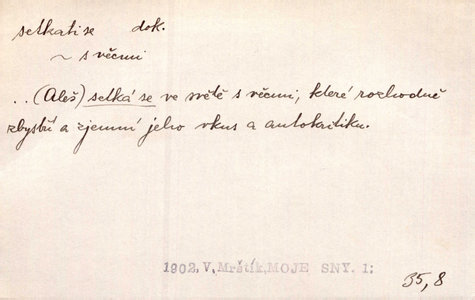 setkati se dok.
~ s věcmi
.. (Aleš) setká se ve světě s věcmi, které rozhodně
zbystří a zjemní jeho vkus a autokritiku.
1902, V. Mrštík, MOJE SNY. 1:
35, 8